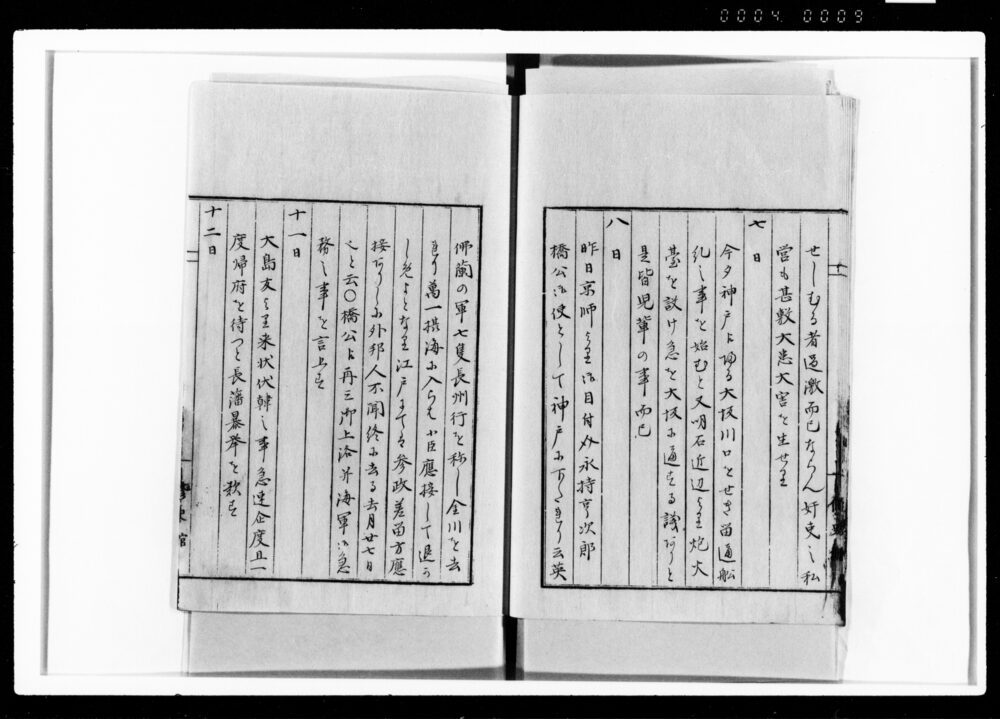 0004 0009
せしむる者過激而已ならん奸吏之私
営も甚敷大患大害を生せり
七日
今夕神戸ゟ帰る大坂川口とせき留通船
乱之事を始むと又明石近辺より炮火
台を設け急を大坂に通する議ありと
是皆児輩の事而已
八日
昨日京師より御目付永持亨次郎
橋公御使として神戸に下たれり云英
佛蘭の軍七隻長州行を称し金川を去
れり萬一摂海に入らも小臣應接して退か
しめよとなり江戸にても参政差留方應
接ありしに外邦人不聞終に去る去月廿七日
と云〇橋公ゟ再三御上洛并海軍御急
務之事を言上す
十一日
大島友より来状伐韓之事急速企度且一
度帰府を待つと長藩暴挙を歎す
十二日